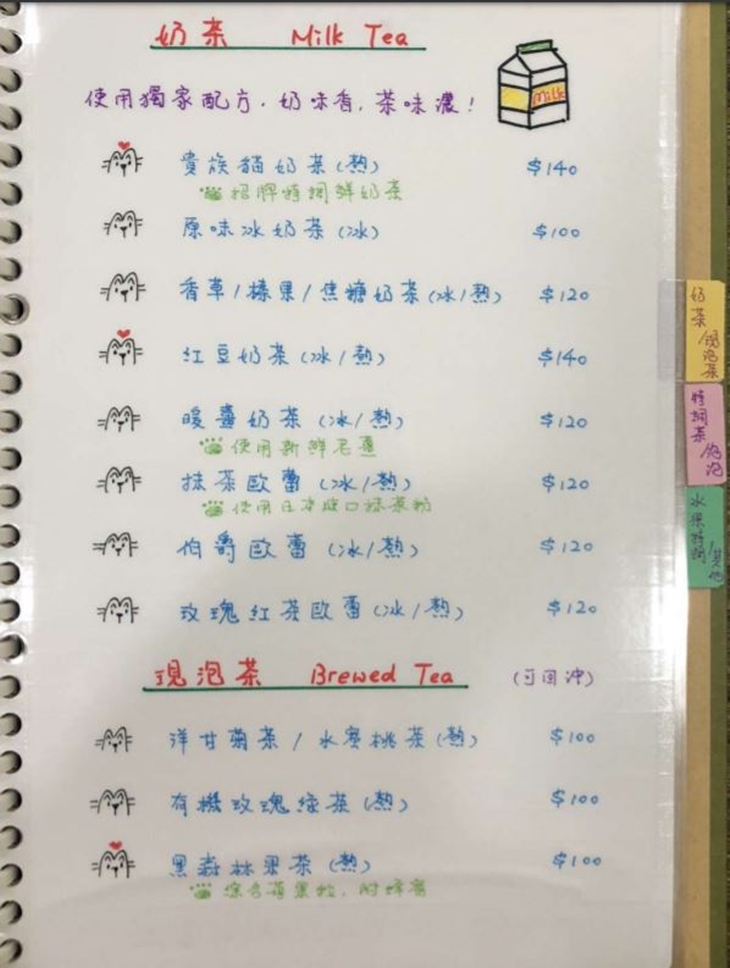 奶茶 Milk Tea
Milk
使用獨家配方，奶味香，茶味濃！
貴族貓奶茶(熱) $140
招牌特調鮮奶茶
原味冰奶茶(冰) $100
香草/榛果/焦糖奶茶(冰/熱) $120
紅豆奶茶(冰/熱) $140
暖薑奶茶(冰/熱) $120
使用新鮮老薑
抹茶歐蕾(冰/熱) $120
使用日本進口抹茶粉
伯爵歐蕾(冰/熱) $120
玫瑰紅茶歐蕾(冰/熱) $120
現泡茶 Brewed Tea (可回沖)
洋甘菊茶/水蜜桃茶(熱) $100
有機玫瑰綠茶(熱) $100
黑森林果茶(熱) $100
綜合莓果粒，附蜂蜜
奶茶/現泡茶
特調茶/氣泡
水果特調/其他